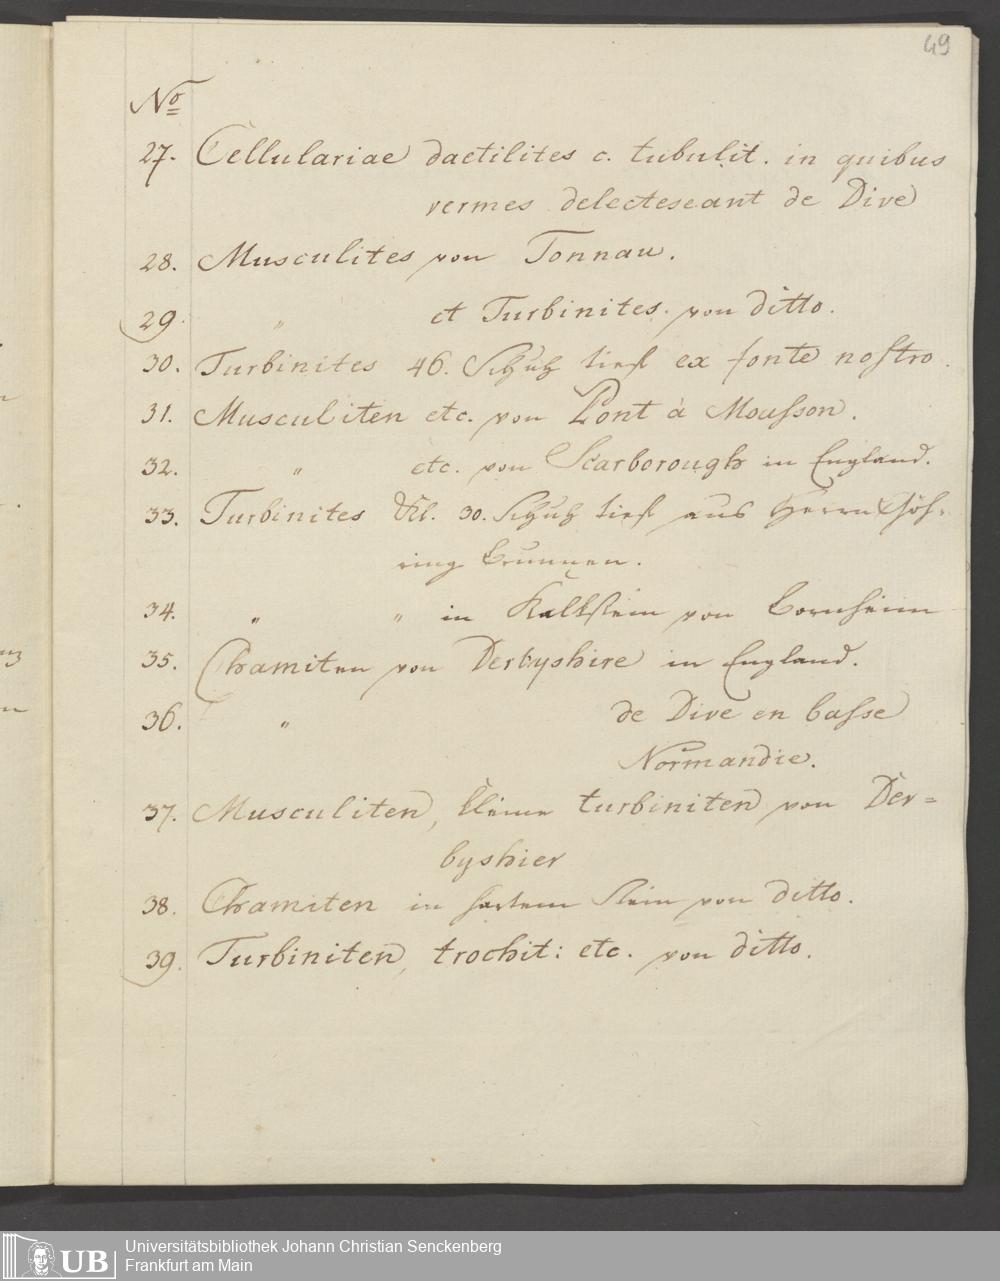 49
No
27. Cellulariae dactilites c. tubulit. in quibus
vermes delecteseant de Dive
28. Musculites von Tonnau.
29. " et Turbinites. von ditto.
30. Turbinites 46. Schuh tief ex fonte nostro.
31. Musculiten etc. von Pont à Mousson.
32. " etc. von Scarborough in England.
33. Turbinites 30. Schuh tief aus Herrn
ring Brunnen.
34. " " in Kalkstein von Bornheim
35. Chamiten von Derbyshire in England.
36. " de Dive en basse
Normandie.
37. Musculiten, kleine turbiniten von Der=
byshier
38. Chamiten in hartem Stein von ditto.
39. Turbiniten, trochit: etc. von ditto.
UB
Universitätsbibliothek Johann Christian Senckenberg
Frankfurt am Main